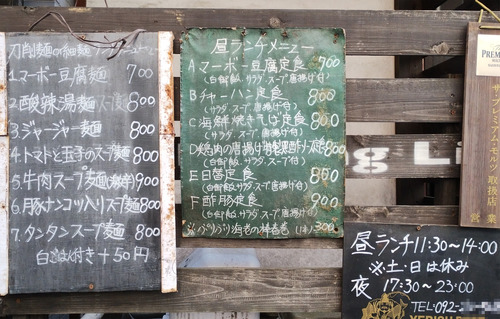 刀削麺の細麺
1.マーボー豆腐麺 700
2.酸辣湯麺 800
3.ジャージャー麺 800
4.トマトと玉子のスープ麺 800
5.牛肉スープ麺(激辛) 900
6.豚ナンコツ入りスープ麺 800
7.タンタンスープ麺 800
白ごはん付き+50円
昼ランチメニュー
Aマーボー豆腐定食 700
(白御飯、サラダ、スープ唐揚げ付)
Bチャーハン定食 800
(サラダ、スープ唐揚げ付)
C海鮮焼きそば定食 800
(サラダ、スープ唐揚げ付)
D 鶏肉の唐揚げ 定食 800
(白御飯、サラダ、スープ付)
E日替定食 800
(白御飯、サラダ、スープ付)
F酢豚定食 900
(白御飯、サラダ、スープ唐揚げ付)
ぷりぷり海老の棒春巻(1本) 300
昼ランチ11:30~14:00
※土・日は休み
夜 17:30~23:00
TEL:092-2
YEBISU
PREM
ザ・プレミアム・モルツ 取扱店
営業